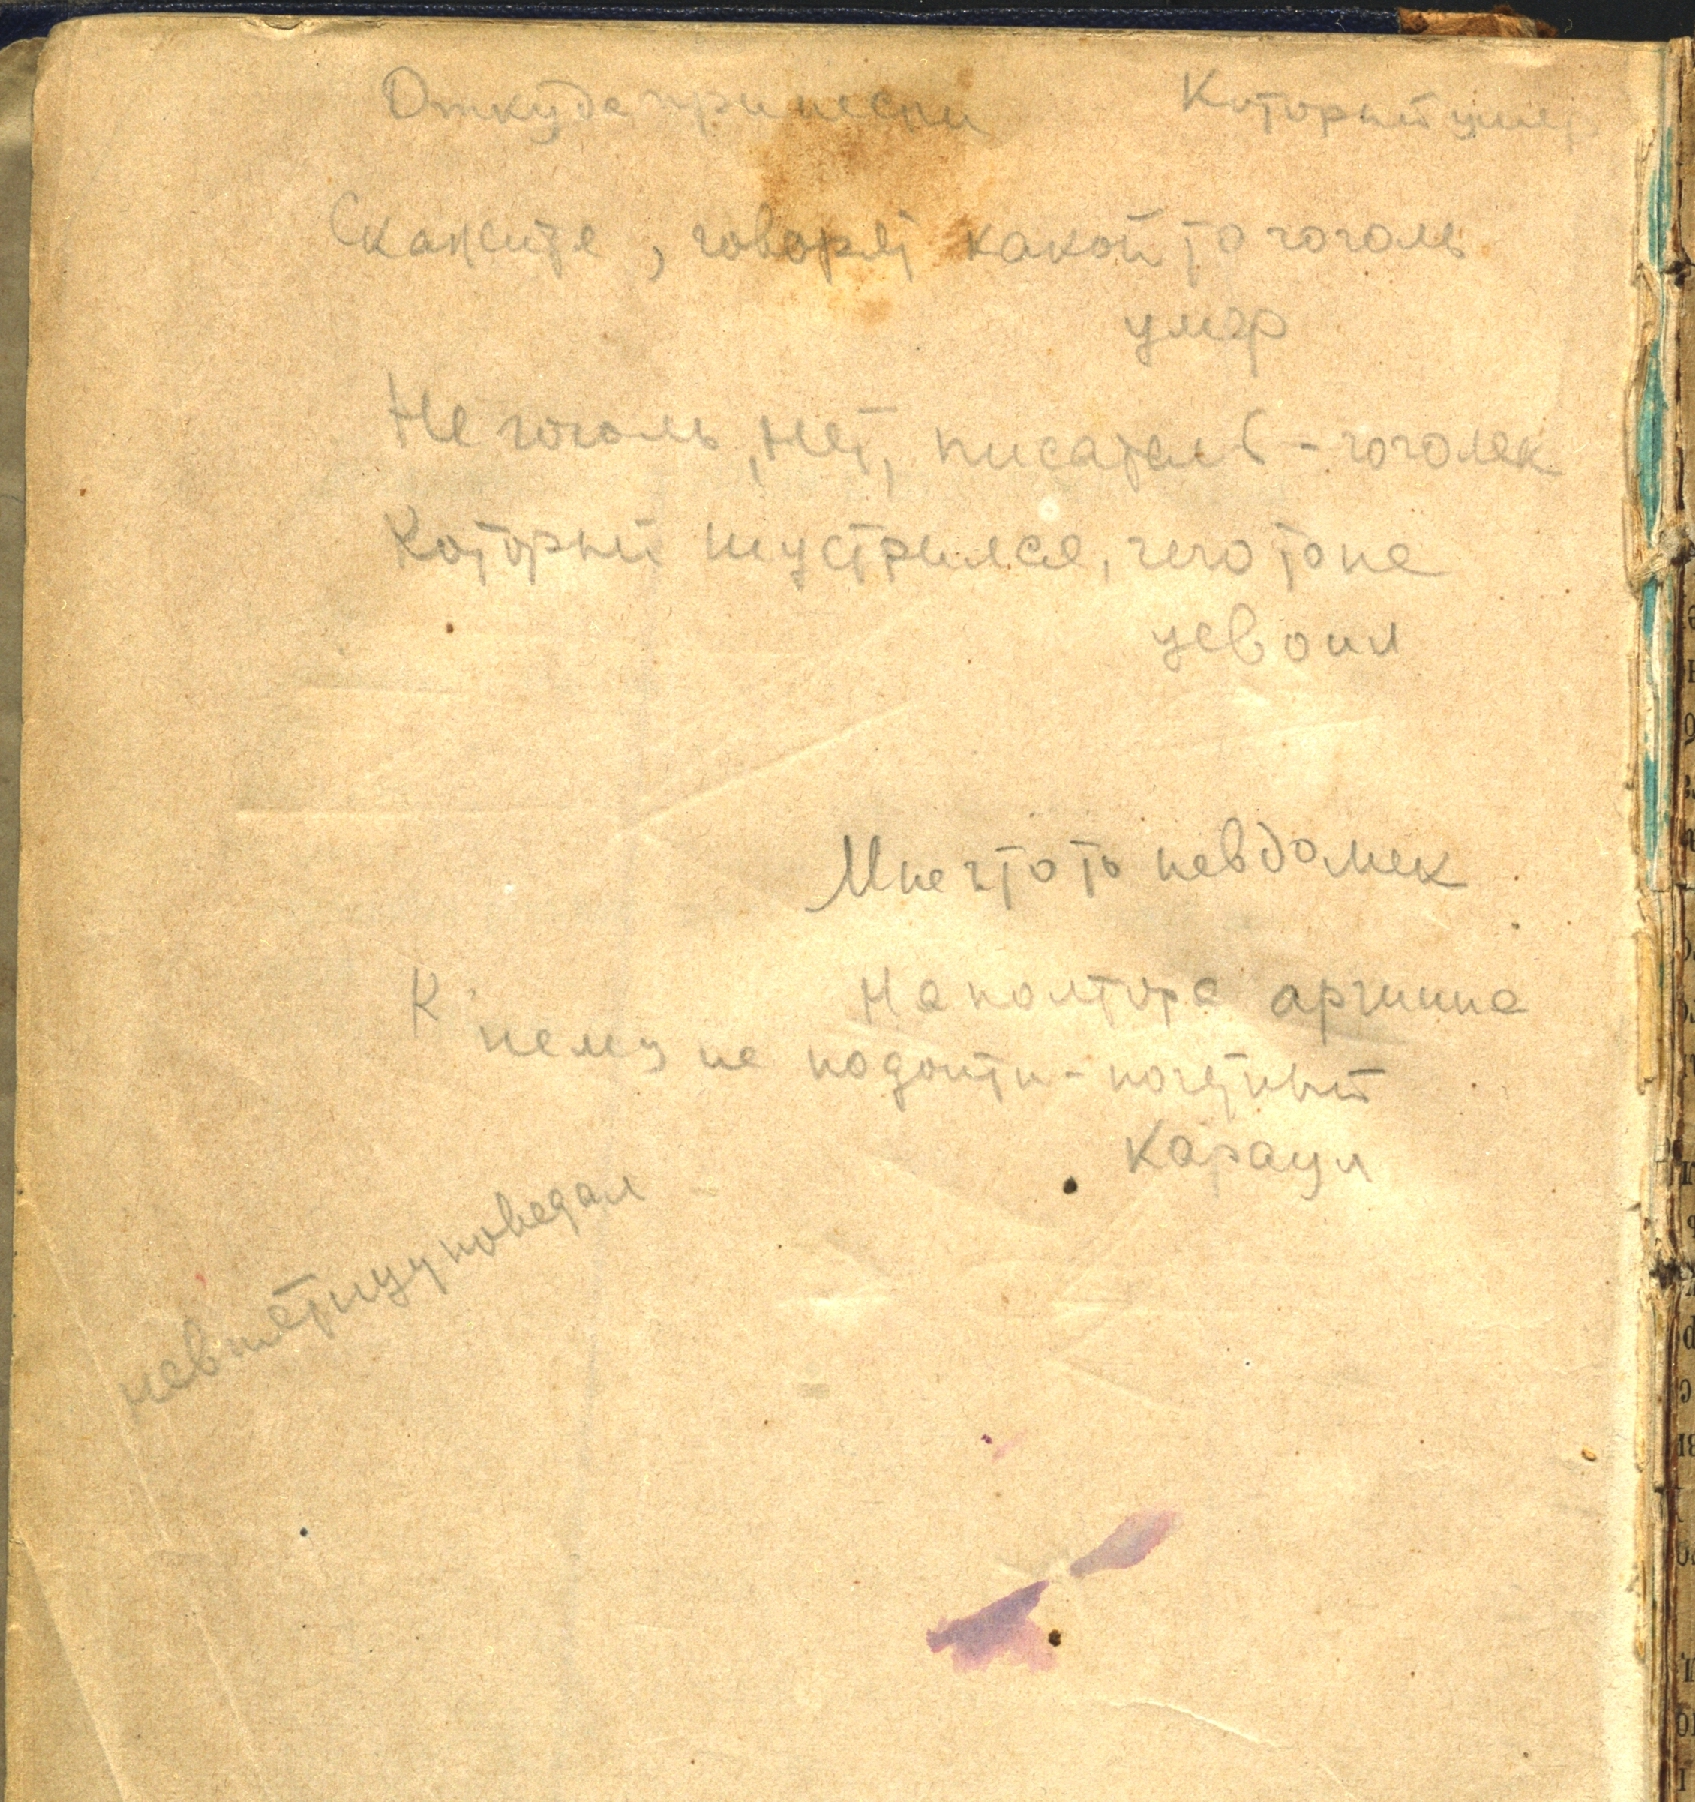 Откуда принесли Который умер
Скажите, говорят какой то гоголь
умер
Не гоголь, нет, писатель - гоголек
Который шустрился, чего то не
усвоил
Мне что то невдомек
На полтора аршина
К нему не подойти - почетный
Караул